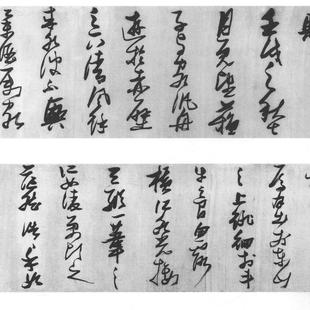 賦
壬戌之秋七
月既望蘇
子與客泛舟
遊於赤壁
之下清風徐
來水波不興
舉酒屬客
焉月出於東山
之上徘徊於斗
牛之間白露
橫江水光接
天縱一葦之
所如凌萬頃之
茫然浩浩乎如